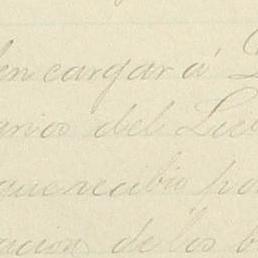 encargar á
arios del
que recibio
acion de los